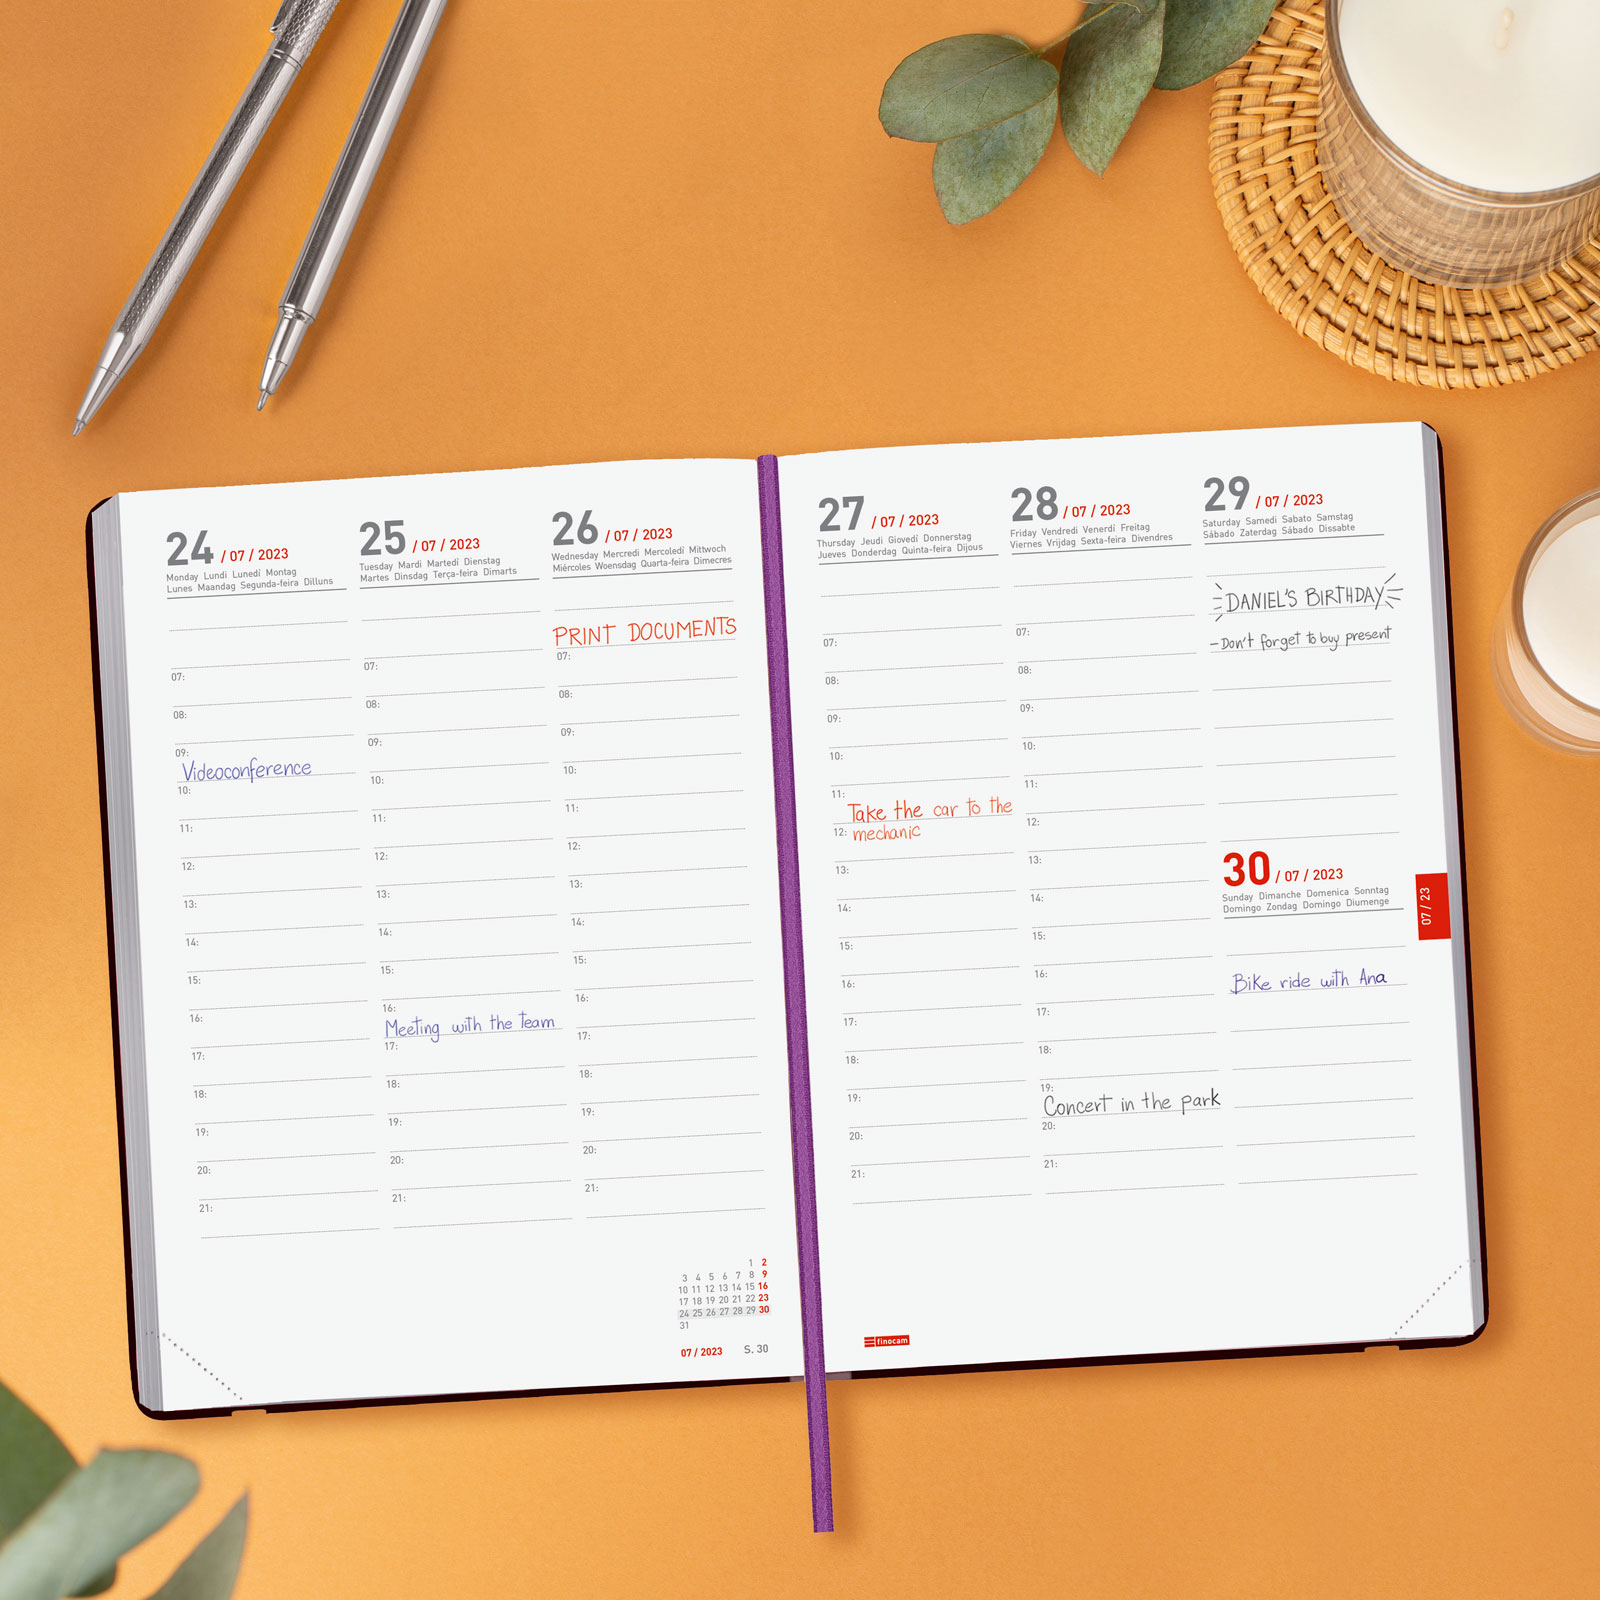 24 / 07 / 2023
Monday Lundi Lunedí Montag
Lunes Maandag Segunda-feira Dilluns
07:
08:
09:
Videoconference
10:
11:
12:
13:
14:
15:
16:
17:
18:
19:
20:
21:
25 / 07 / 2023
Tuesday Mardi Martedí Dienstag
Martes Dinsdag Terça-feira Dimarts
07:
08:
09:
10:
11:
12:
13:
14:
15:
16:
Meeting with the team
17:
18:
19:
20:
21:
26 / 07 / 2023
Wednesday Mercredi Mercoledí Mittwoch
Miércoles Woensdag Quarta-feira Dimecres
PRINT DOCUMENTS
07:
08:
09:
10:
11:
12:
13:
14:
15:
16:
17:
18:
19:
20:
21:
1 2
3 4 5 6 7 8 9
10 11 12 13 14 15 16
17 18 19 20 21 22 23
24 25 26 27 28 29 30
31
07 / 2023 S. 30
27 / 07 / 2023
Thursday Jeudi Giovedí Donnerstag
Jueves Donderdag Quinta-feira Dijous
07:
08:
09:
10:
11:
Take the car to the
12: mechanic
13:
14:
15:
16:
17:
18:
19:
20:
21:
28 / 07 / 2023
Friday Vendredi Venerdí Freitag
Viernes Vrijdag Sexta-feira Divendres
07:
08:
09:
10:
11:
12:
13:
14:
15:
16:
17:
18:
19:
Concert in the park
20:
21:
29 / 07 / 2023
Saturday Samedi Sabato Samstag
Sábado Zaterdag Sábado Dissabte
DANIEL'S BIRTHDAY
- Don't forget to buy present
30 / 07 / 2023
Sunday Dimanche Domenica Sonntag
Domingo Zondag Domingo Diumenge
Bike ride with Ana
07 / 23
finocam